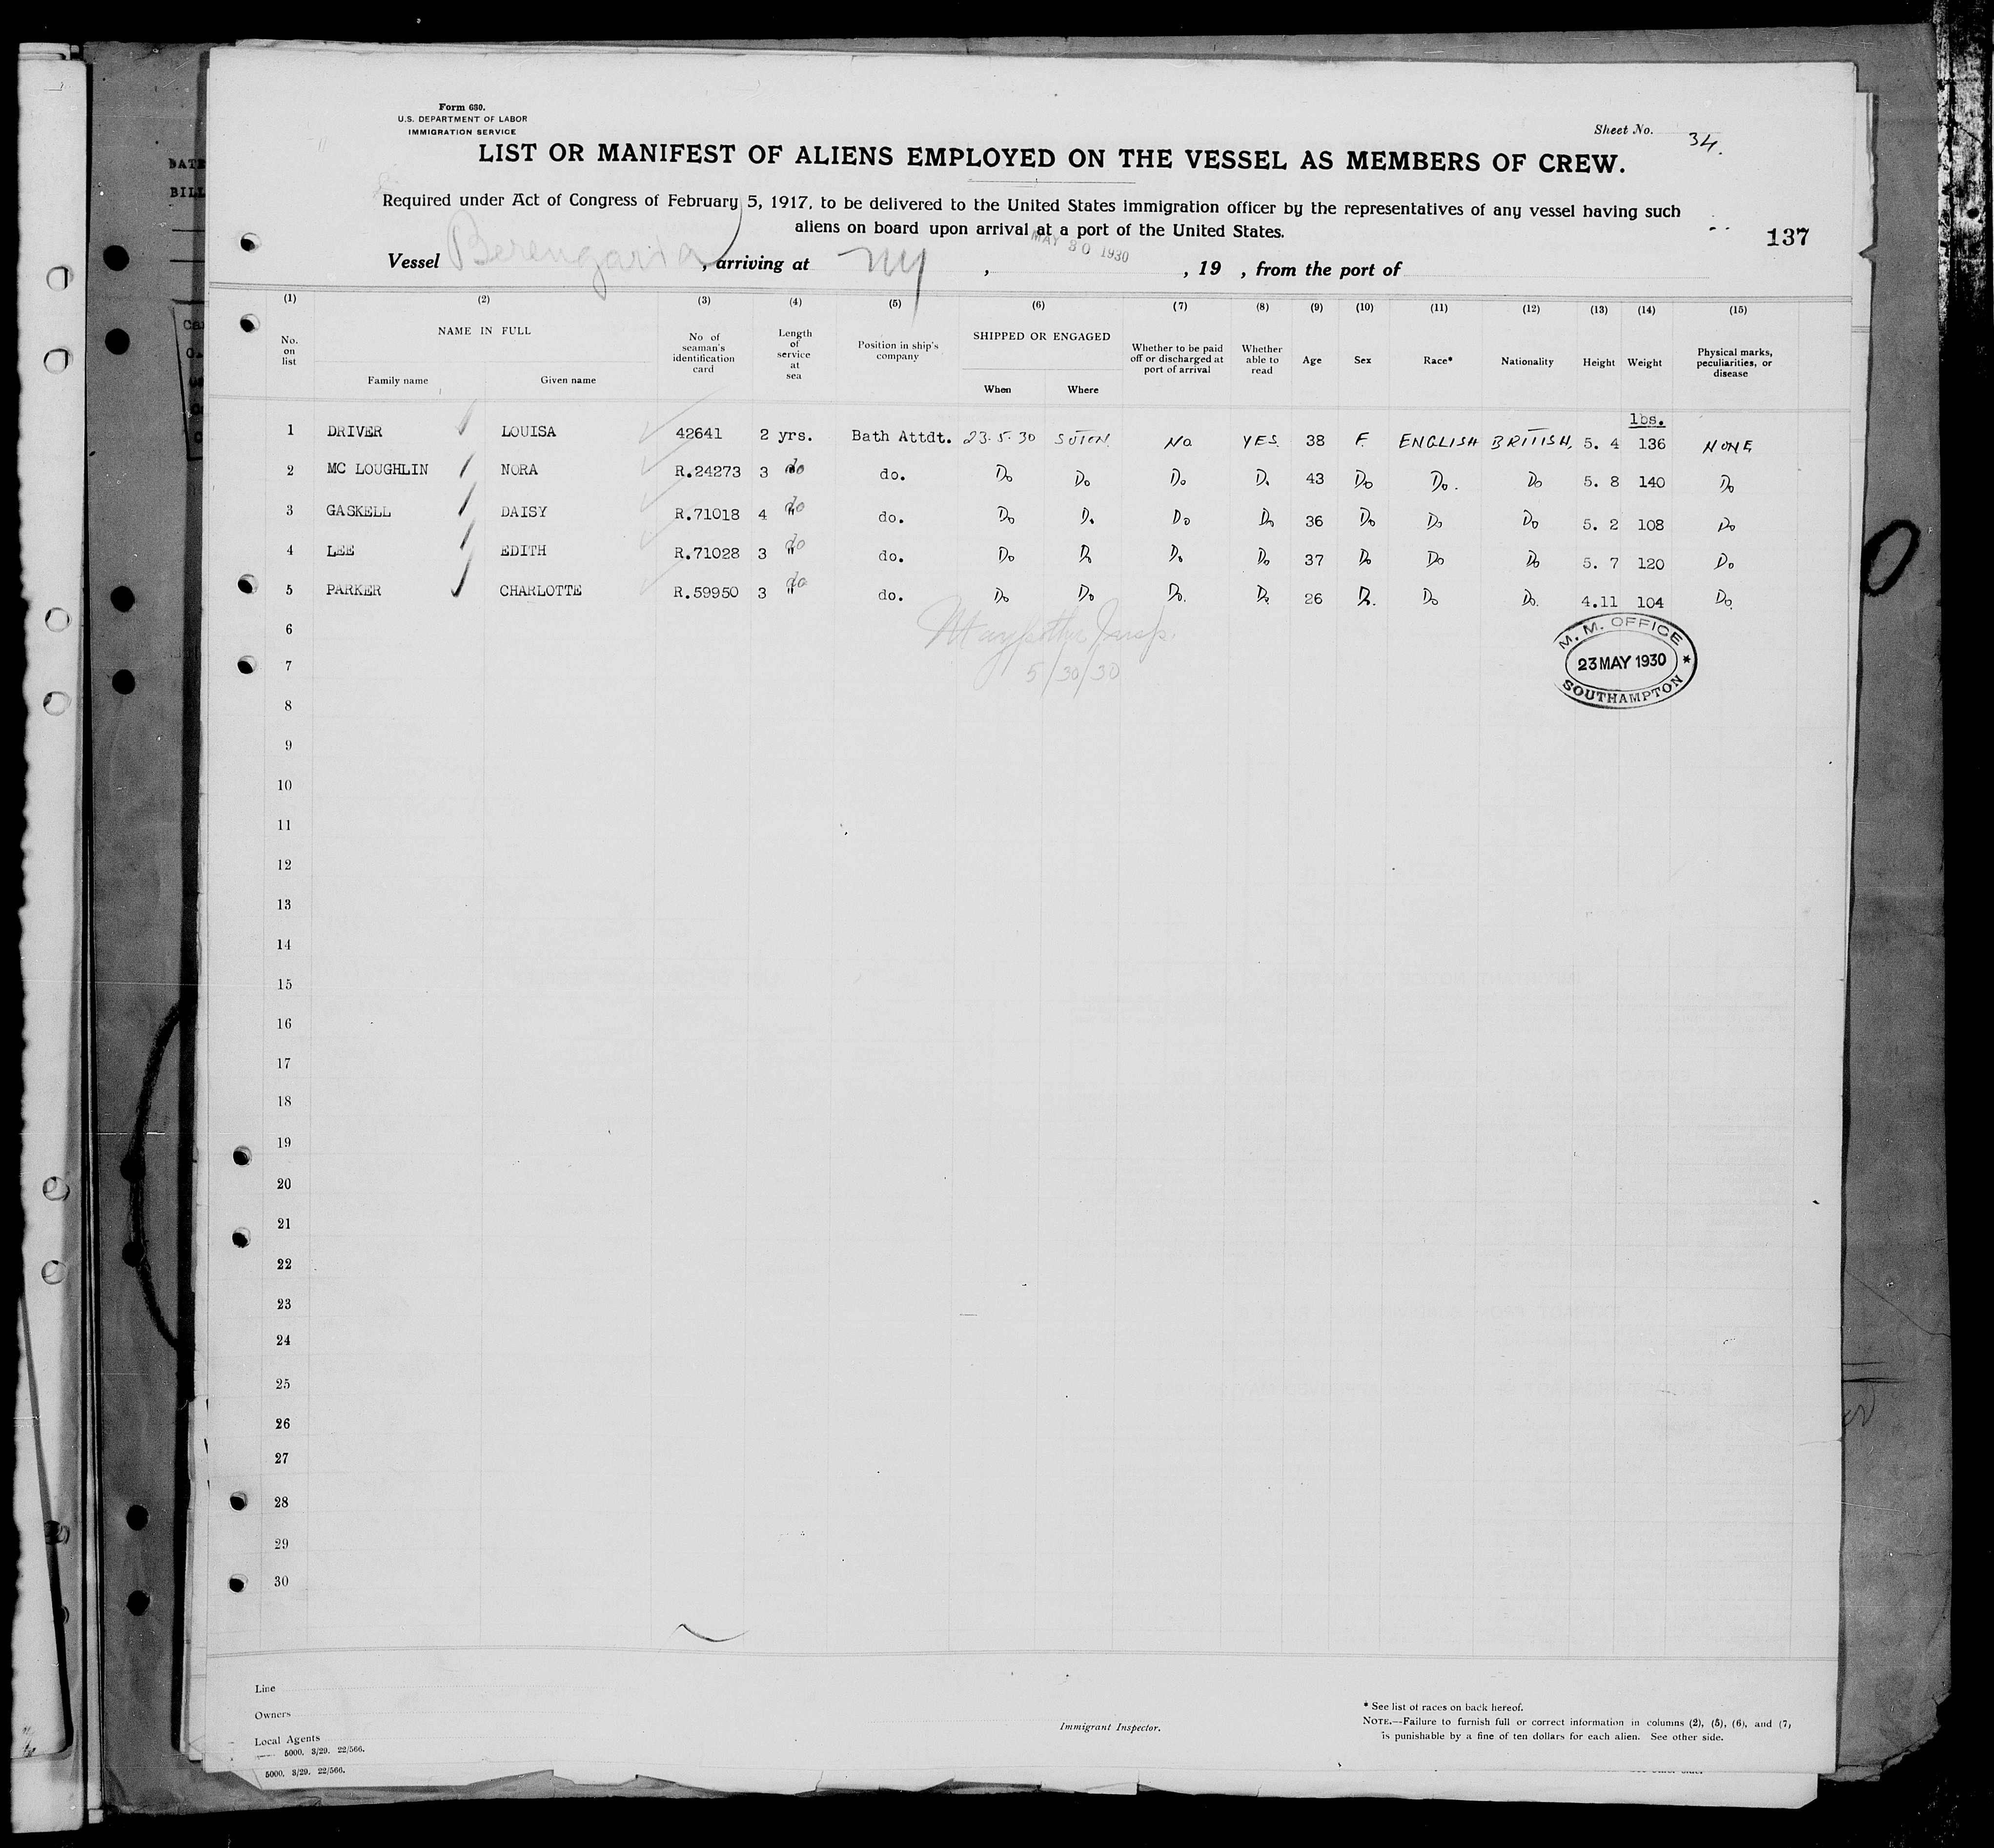 Form 680.
U.S. DEPARTMENT OF LABOR
IMMIGRATION SERVICE
Sheet No. 34.
LIST OR MANIFEST OF ALIENS EMPLOYED ON THE VESSEL AS MEMBERS OF CREW.
Required under Act of Congress of February 5, 1917, to be delivered to the United States immigration officer by the representatives of any vessel having such
aliens on board upon arrival at a port of the United States.
137
MAY 30 1930
Vessel Berengaria, arriving at NY, , 19 , from the port of
(1) (2) (3) (4) (5) (6) (7) (8) (9) (10) (11) (12) (13) (14) (15)
No. on list NAME IN FULL Family name Given name No of seaman's identification card Length of service at sea Position in ship's company SHIPPED OR ENGAGED When Where Whether to be paid off or discharged at port of arrival Whether able to read Age Sex Race* Nationality Height Weight Physical marks, peculiarities, or disease
lbs.
1 DRIVER LOUISA 42641 2 yrs. Bath Attdt. 23.5.30 SOTON. No YES. 38 F. ENGLISH BRITISH, 5. 4 136 NONE
2 MC LOUGHLIN NORA R.24273 3 do do. Do Do Do Do 43 Do Do. Do 5. 8 140 Do
3 GASKELL DAISY R.71018 4 do do. Do Do Do Do 36 Do Do Do 5. 2 108 Do
4 LEE EDITH R.71028 3 do do. Do Do Do Do 37 Do Do Do 5. 7 120 Do
5 PARKER CHARLOTTE R.59950 3 do do. Do Do Do. Do 26 Do. Do Do. 4.11 104 Do.
6
5/30/30
M. M. OFFICE
23 MAY 1930 *
SOUTHAMPTON
7
8
9
10
11
12
13
14
15
16
17
18
19
20
21
22
23
24
25
26
27
28
29
30
Line
Owners
Local Agents
5000. 3/29. 22/566.
5000. 3/29. 22/566.
Immigrant Inspector.
* See list of races on back hereof.
NOTE.—Failure to furnish full or correct information in columns (2), (5), (6), and (7)
is punishable by a fine of ten dollars for each alien. See other side.